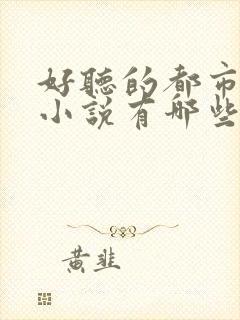 好聽的都市
小說有哪些
黃韭